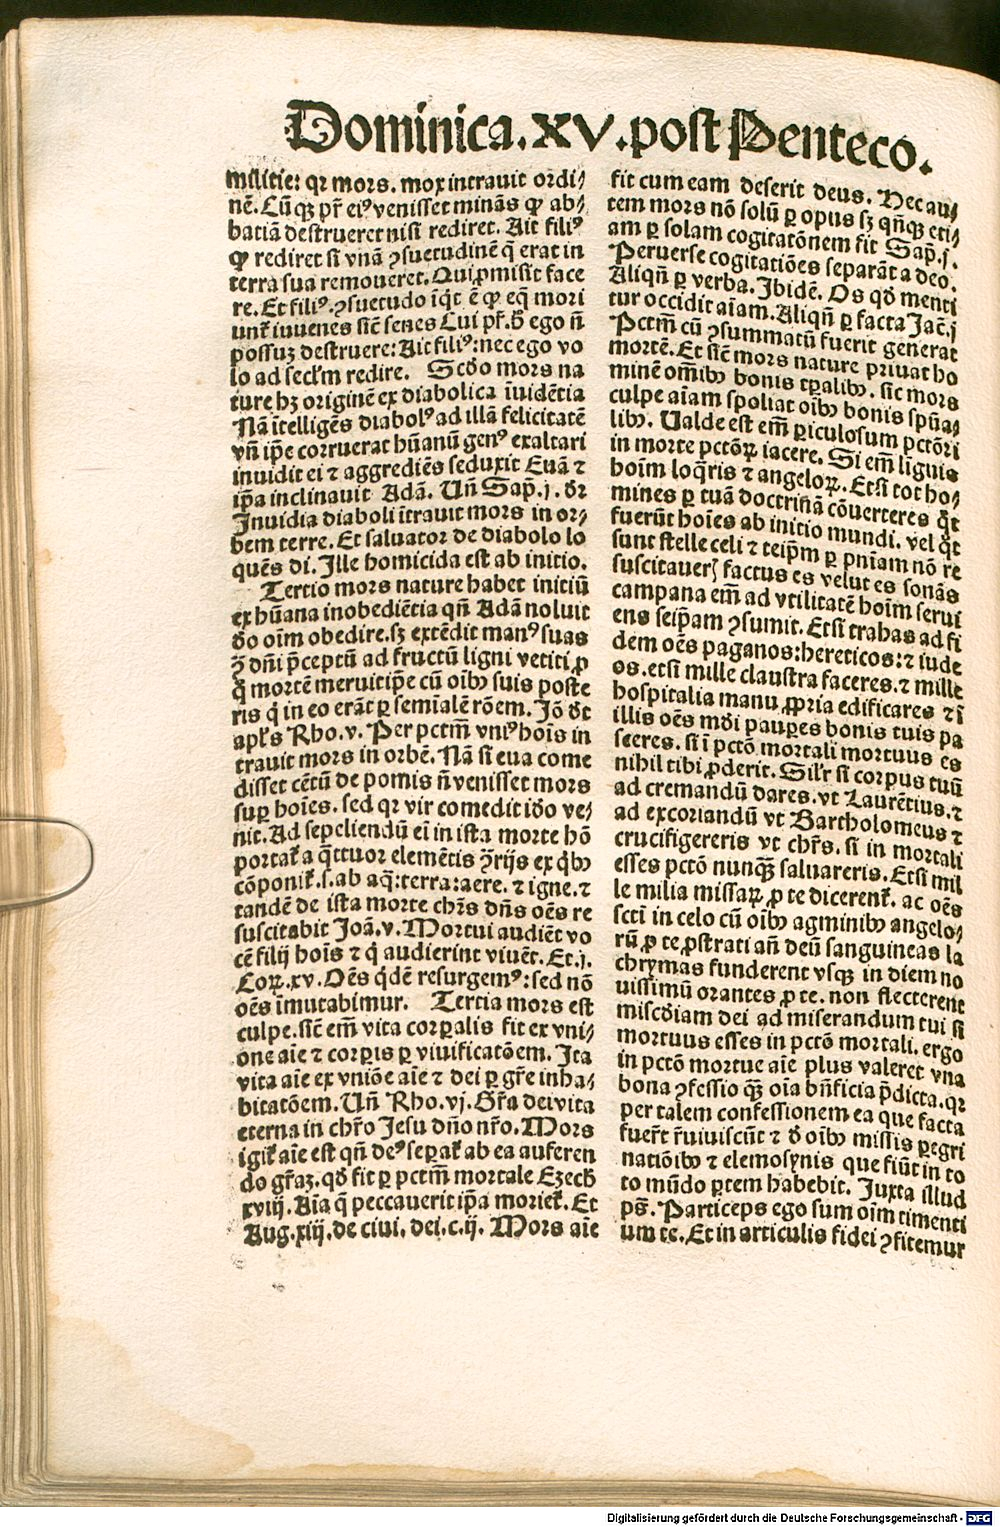 Dominica.XV.post Penteco.
militie: qꝛ mors. mox intrauit oꝛdi⸗
nē. Cū qꝫ pr̄ eiꝰ venisset minās ꝙ ab⸗
batiā destrueret nisi rediret. Ait filiꝰ
ꝙ rediret si vnā ꝯsuetudinē q̄ erat in
terra sua remoueret. Qui ꝓmisit face
re. Et filiꝰ. ꝯsuetudo īq̇t ē ꝙ eq̄ moꝛi
unt̄ iuuenes sic̄ senes Cui pr̄. hͦ ego n̄
possuꝫ destruere: Ait filiꝰ: nec ego vo
lo ad secl̄m redire. Scd̄o moꝛs na
ture hꝫ oꝛiginē ex diabolica īuidētia
Nā ītelligēs diabolꝰ ad illā felicitatē
vn̄ ip̄e coꝛruerat hūanū genꝰ exaltari
inuidit ei ⁊ aggrediēs seduxit Euā ⁊
ip̄a inclinauit Adā. Un̄ Sap̄.j. dꝛ̄
Inuidia diaboli ītrauit moꝛs in oꝛ⸗
bem terre. Et saluatoꝛ de diabolo lo
quēs dī. Ille homicida est ab initio.
Tertio moꝛs nature habet initiū
ex hūana inobediētia qn̄ Adā noluit
do oīm obedire. sꝫ extēdit manꝰ suas
ꝯ̄ dn̄i p̄ceptū ad fructū ligni vetiti ꝓ
q̄ moꝛtē meruit ip̄e cū oībꝰ suis poste
ris q̇ in eo erāt ꝑ semīalē rōem. Iō dt̄
apl̄s Rho.v. Per pctm̄ vniꝰ hoīs in
trauit moꝛs in oꝛbē. Nā si eua come
disset cētū de pomis n̄ venisset moꝛs
suꝑ hoīes. sed qꝛ vir comedit iō ve⸗
nit. Ad sepeliendū eī in ista moꝛte hō
poꝛtat̄ a q̇ttuoꝛ elemētis ꝯ̄rijs ex q̇bꝰ
cōponit̄.s.ab aq̄:terra:aere.⁊ igne.⁊
tandē de ista moꝛte chr̄s dn̄s oēs re
suscitabit Joā.v. Moꝛtui audiēt vo
cē filij hoīs ⁊ q̇ audierint viuēt. Et.j.
Coꝝ.xv. Oēs q̇dē resurgemꝰ:sed nō
oēs īmutabimur. Tertia moꝛs est
culpe. sic̄ em̄ vita coꝛꝑalis fit ex vni⸗
one aīe ⁊ coꝛꝑis ꝑ viuificatōem. Ita
vita aīe ex vniōe aīe ⁊ dei ꝑ gr̄e inha⸗
bitatōem. Un̄ Rho.vj. Gr̄a dei vita
eterna in chr̄o Jesu dn̄o nr̄o. Moꝛs
igit̄ aīe est qn̄ deꝰ sepat̄ ab ea auferen
do gr̄aꝫ. qd̄ fit ꝑ pctm̄ moꝛtale Ezech̄
xviij. Aīa q̄ peccauerit ip̄a moꝛiet̄. Et
Aug.xiij.de ciui. dei.c.ij. Moꝛs aīe
fit cum eam deserit deus. Hec au⸗
tem moꝛs nō solū ꝑ opus sꝫ qn̄qꝫ eti⸗
am ꝑ solam cogitatōnem fit Sap̄.j.
Peruerse cogitatiōes separāt a deo.
Aliqn̄ ꝑ verba. Ibidē. Os qd̄ menti
tur occidit aīam. Aliqn̄ ꝑ facta Jac̄.j
Pctm̄ cū ꝯsummatū fuerit generat
moꝛtē. Et sic̄ moꝛs nature priuat ho
minē om̄ibꝰ bonis tꝑalibꝰ. sic moꝛs
culpe aīam spoliat oībꝰ bonis spūa⸗
libꝰ. Ualde est em̄ ꝑiculosum pctōꝛi
in moꝛte pctōꝝ iacere. Si em̄ liguis
hoīm loq̄ris ⁊ angeloꝝ. Etsi tot ho⸗
mines ꝑ tuā doctrinā cōuerteres q̇t
fuerūt hoīes ab initio mundi. vel q̇t
sunt stelle celi ⁊ teip̄m ꝑ pnīam nō re
suscitauer̄ factus es velut es sonās
campana em̄ ad vtilitatē hoīm serui
ens seip̄am ꝯsumit. Etsi trahas ad fi
dem oēs paganos:hereticos:⁊ iude
os. etsi mille claustra faceres.⁊ mille
hospitalia manu ꝓpria edificares ⁊ ī
illis oēs mūdi pauꝑes bonis tuis pa
sceres. si ī pctō moꝛtali moꝛtuus es
nihil tibi ꝓderit. Sil̄r si coꝛpus tuū
ad cremandū dares. vt Laurētius.⁊
ad excoꝛiandū vt Bartholomeus ⁊
crucifigereris vt chr̄s. si in moꝛtali
esses pctō nunqꝫ saluareris. Etsi mil
le milia missaꝝ ꝓ te dicerent̄. ac oēs
scti in celo cū oībꝰ agminibꝰ angelo⸗
rū ꝓ te ꝓstrati an̄ deū sanguineas la
chrymas funderent vsqꝫ in diem no
uissimū oꝛantes ꝓ te. non flecterent
miscd̄iam dei ad miserandum tui si
moꝛtuus esses in pctō moꝛtali. ergo
in pctō moꝛtue aīe plus valeret vna
bona ꝯfessio qꝫ oīa bn̄ficia p̄dicta. qꝛ
per talem confessionem ea que facta
fuer̄t r̄uiuiscūt ⁊ d̄ oībꝰ missis ꝑegri
natiōibꝰ ⁊ elemosynis que fiūt in to
to mūdo ꝑtem habebit. Juxta illud
ps̄. Particeps ego sum oīm timenti
um te. Et in articulis fidei ꝯfitemur
Digitalisierung gefördert durch die Deutsche Forschungsgemeinschaft - DFG